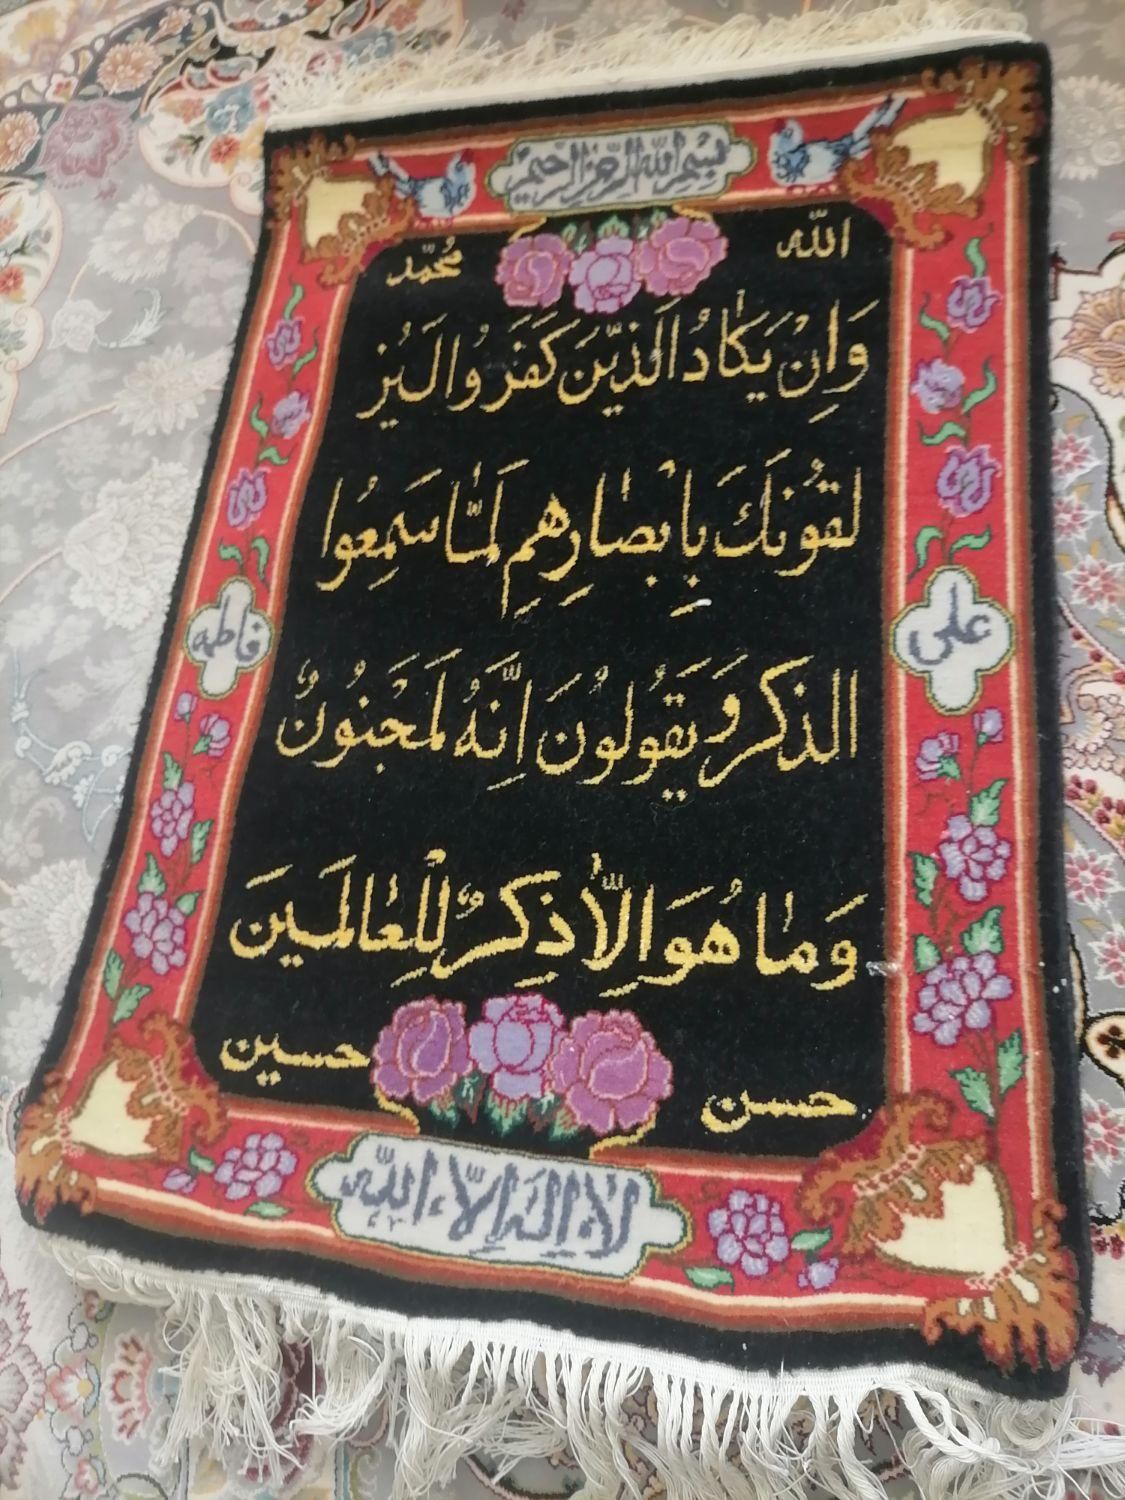 بِسْمِ اللّٰهِ الرَّحْمٰنِ الرَّحِیْمِ
اللّٰه
مُحَمَّد
وَاِنْ یَکٰادُ الَذّیٖنَ کَفَرُوا لَیُز
لِقُونَکَ بِاَبْصٰارِهِم لَمّٰا سَمِعُوا
الذکر وَ یَقُولُونَ اِنَّهُ لَمَجْنُونٌ
وَ مٰا هُوَ اِلاّٰ ذِکرٌ لِلْعٰالَمینَ
علی
فاطمه
حسن
حسین
لا اِلهَ اِلاّ اللّٰه